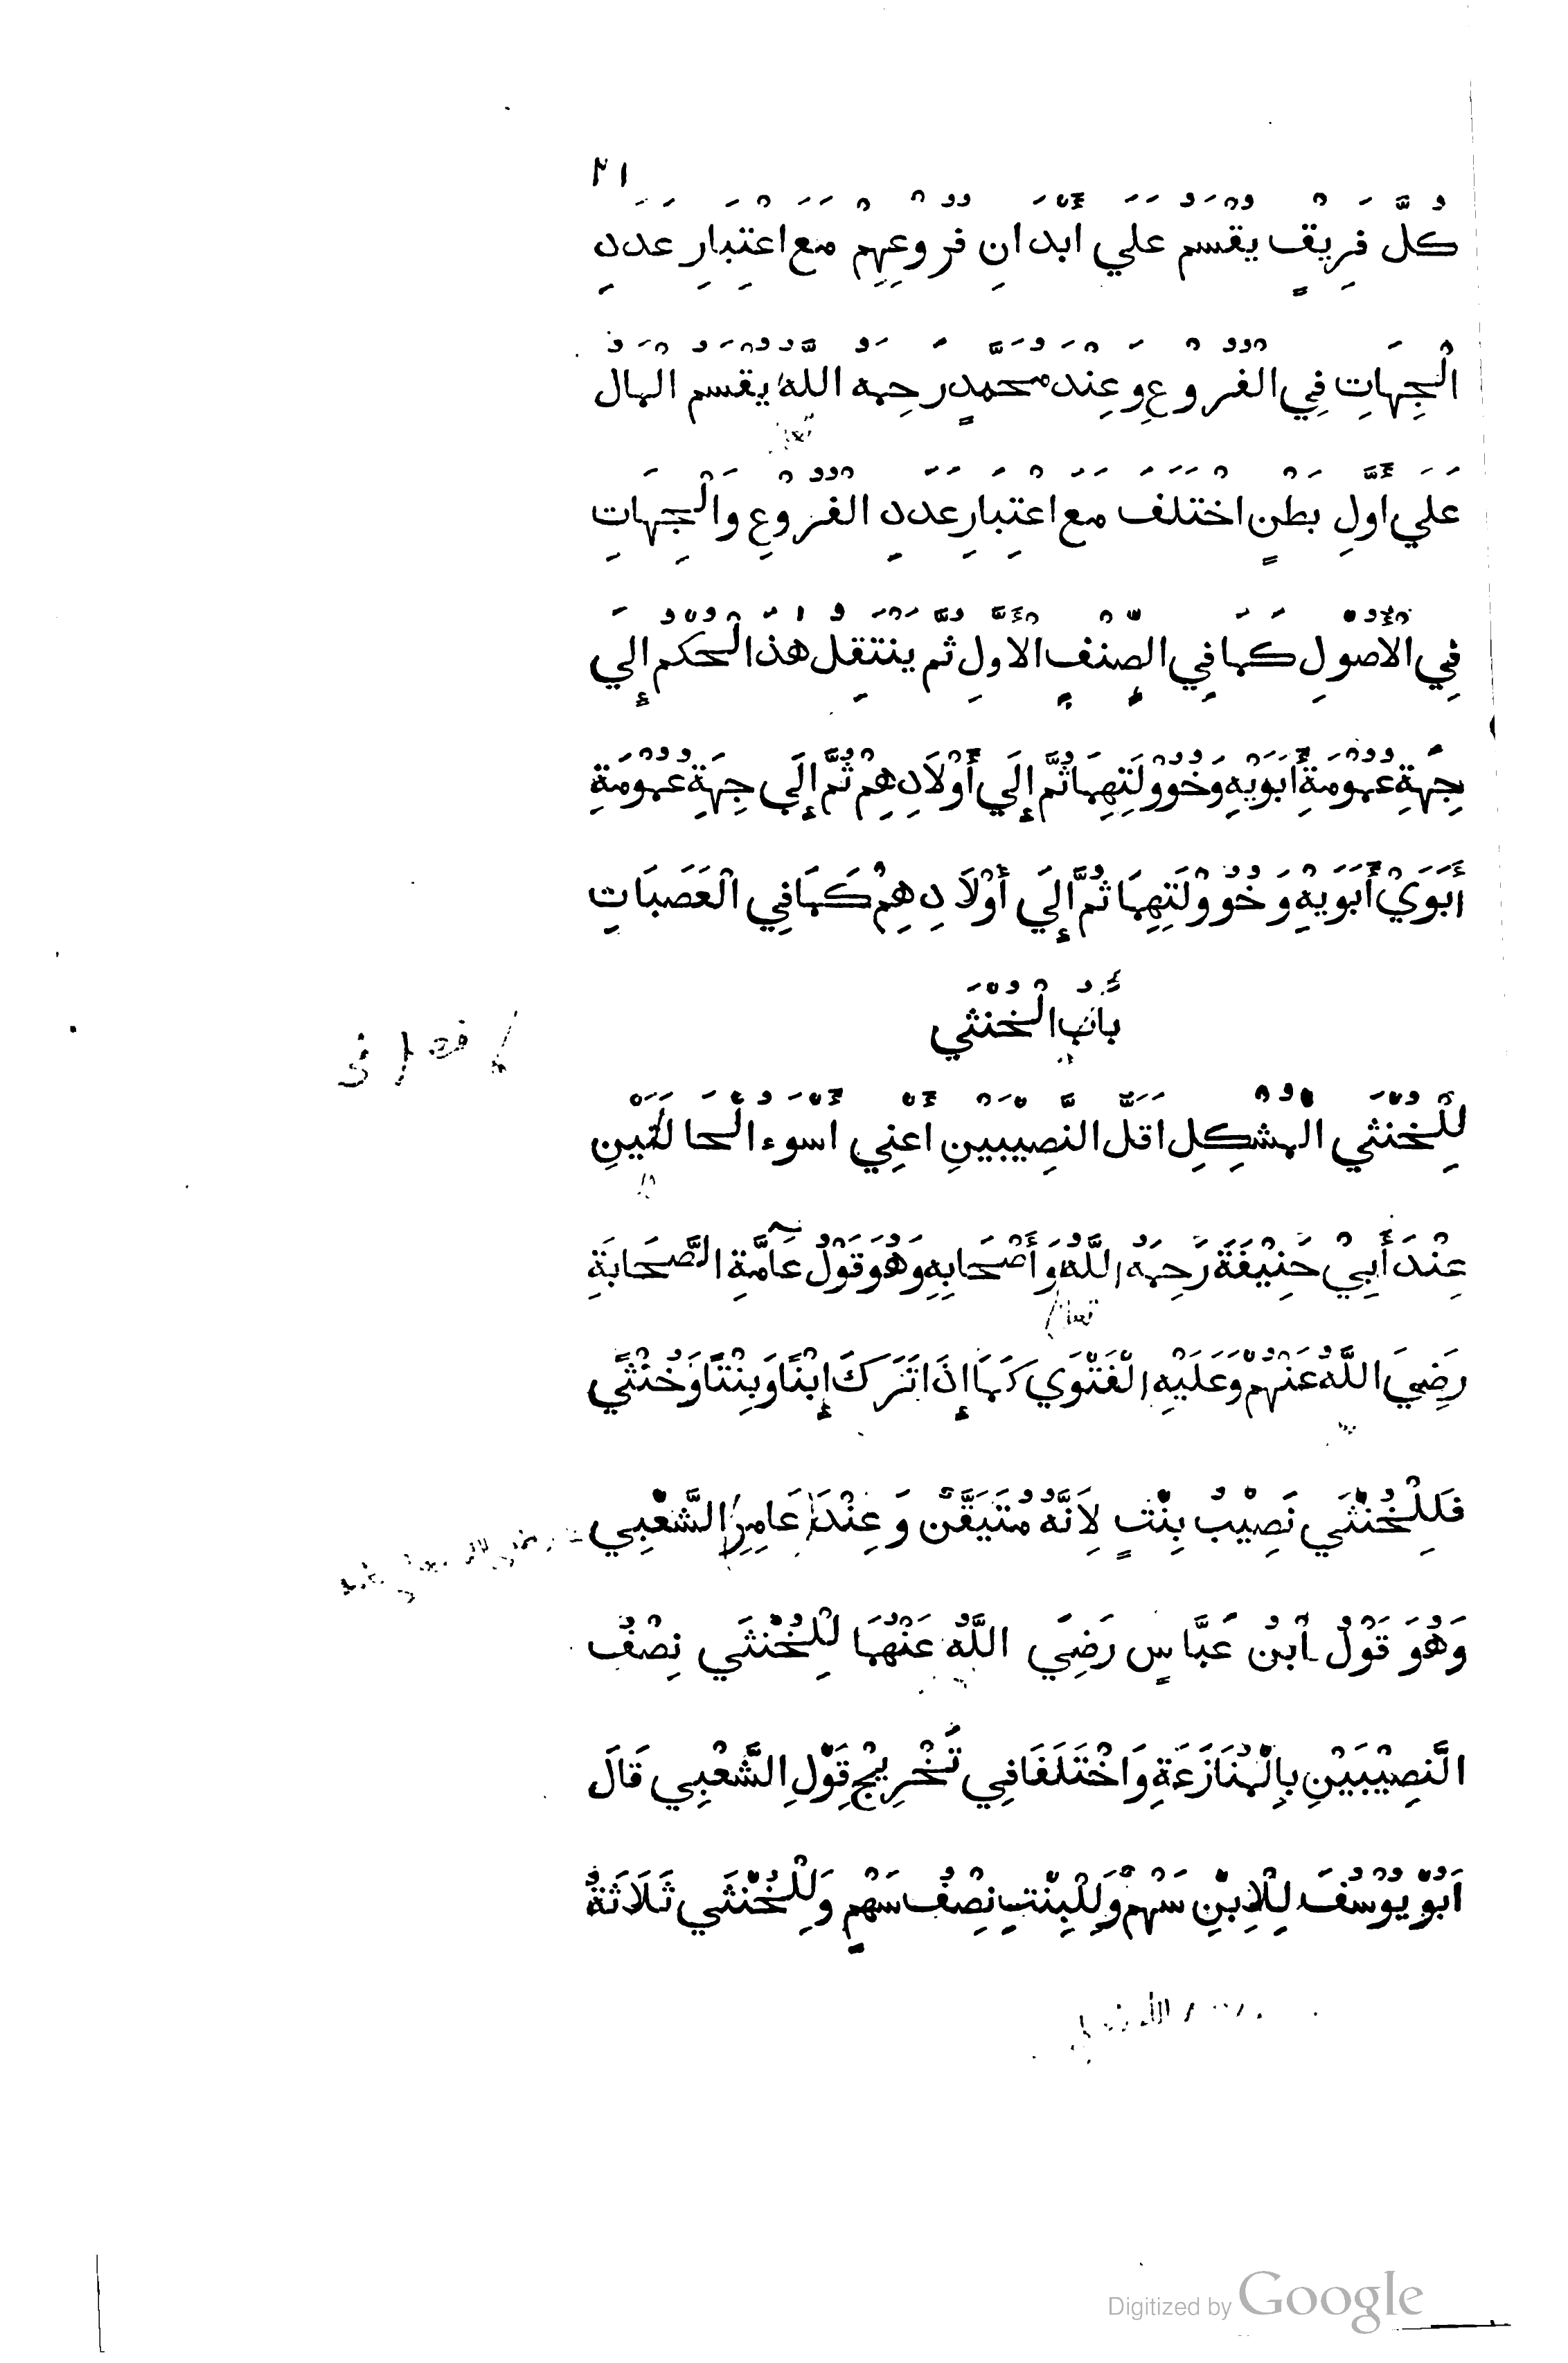 ٢١
كُلُّ فَرِيْقٍ يُقْسَمُ عَلَي أَبْدَانِ فُرُوْعِهِمْ مَعَ اعْتِبَارِ عَدَدِ
الْجِهَاتِ فِي الْفُرُوْعِ وَعِنْدَ مُحَمَّدٍ رَحِمَهُ اللَّهُ يُقْسَمُ الْمَالُ
عَلَي أَوَّلِ بَطْنٍ اخْتَلَفَ مَعَ اعْتِبَارِ عَدَدِ الْفُرُوْعِ وَالْجِهَاتِ
فِي الْأُصُوْلِ كَمَا فِي الصِّنْفِ الْأَوَّلِ ثُمَّ يَنْتَقِلُ هٰذَا الْحُكْمُ إِلَي
جِهَةِ عُمُوْمَةِ أَبَوَيْهِ وَخُؤُوْلَتِهِمَا ثُمَّ إِلَي أَوْلَادِهِمْ ثُمَّ إِلَي جِهَةِ عُمُوْمَةِ
أَبَوَيْ أَبَوَيْهِ وَخُؤُوْلَتِهِمَا ثُمَّ إِلَي أَوْلَادِهِمْ كَمَا فِي الْعَصَبَاتِ
بَابُ الْخُنْثَي
فصل في
لِلْخُنْثَي الْمُشْكِلِ أَقَلُّ النَّصِيْبَيْنِ أَعْنِي أَسْوَءَ الْحَالَتَيْنِ
عِنْدَ أَبِيْ حَنِيْفَةَ رَحِمَهُ اللَّهُ وَأَصْحَابِهِ وَهُوَ قَوْلُ عَآمَّةِ الصَّحَابَةِ
تعالى
رَضِيَ اللَّهُ عَنْهُمْ وَعَلَيْهِ الْفَتْوَي كَمَا إِذَا تَرَكَ إِبْنًا وَبِنْتًا وَخُنْثًي
فَلِلْخُنْثَي نَصِيْبُ بِنْتٍ لِأَنَّهُ مُتَيَقَّنٌ وَعِنْدَ عَامِرِ الشَّعْبِي
وَهُوَ قَوْلُ ابْنِ عَبَّاسٍ رَضِيَ اللَّهُ عَنْهُمَا لِلْخُنْثَي نِصْفُ
النَّصِيْبَيْنِ بِالْمُنَازَعَةِ وَاخْتَلَفَا فِي تَخْرِيْجِ قَوْلِ الشَّعْبِي قَالَ
اَبُوْ يُوْسُفَ لِلْاِبْنِ سَهْمٌ وَلِلْبِنْتِ نِصْفُ سَهْمٍ وَلِلْخُنْثَي ثَلَاثَةُ
Digitized by Google